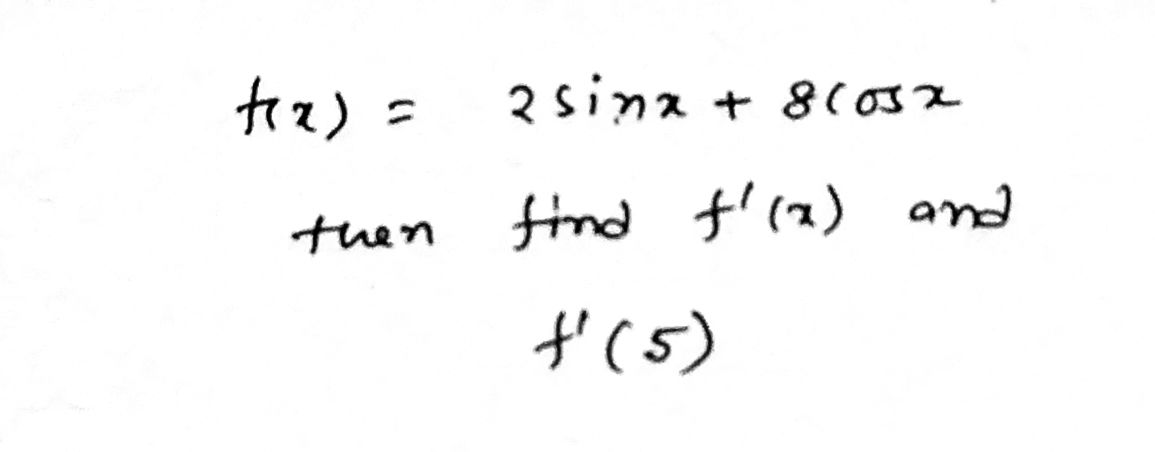 f(x) = 2 sinx + 8cosx
then find f'(x) and
f'(5)